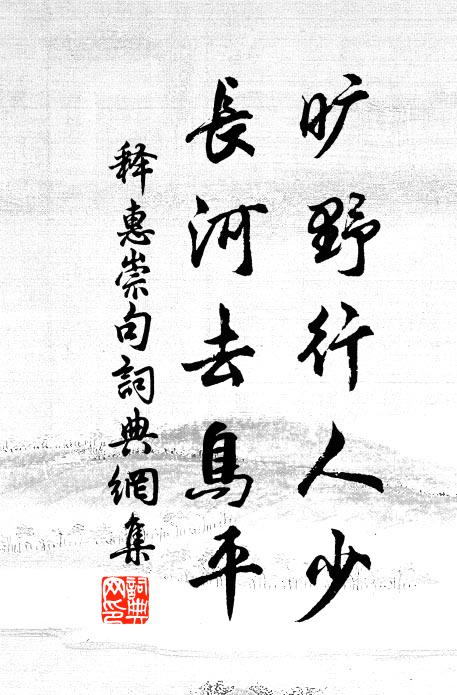 旷野行人少
長河去鳥平
释惠崇句詞典網集
詞典
网印